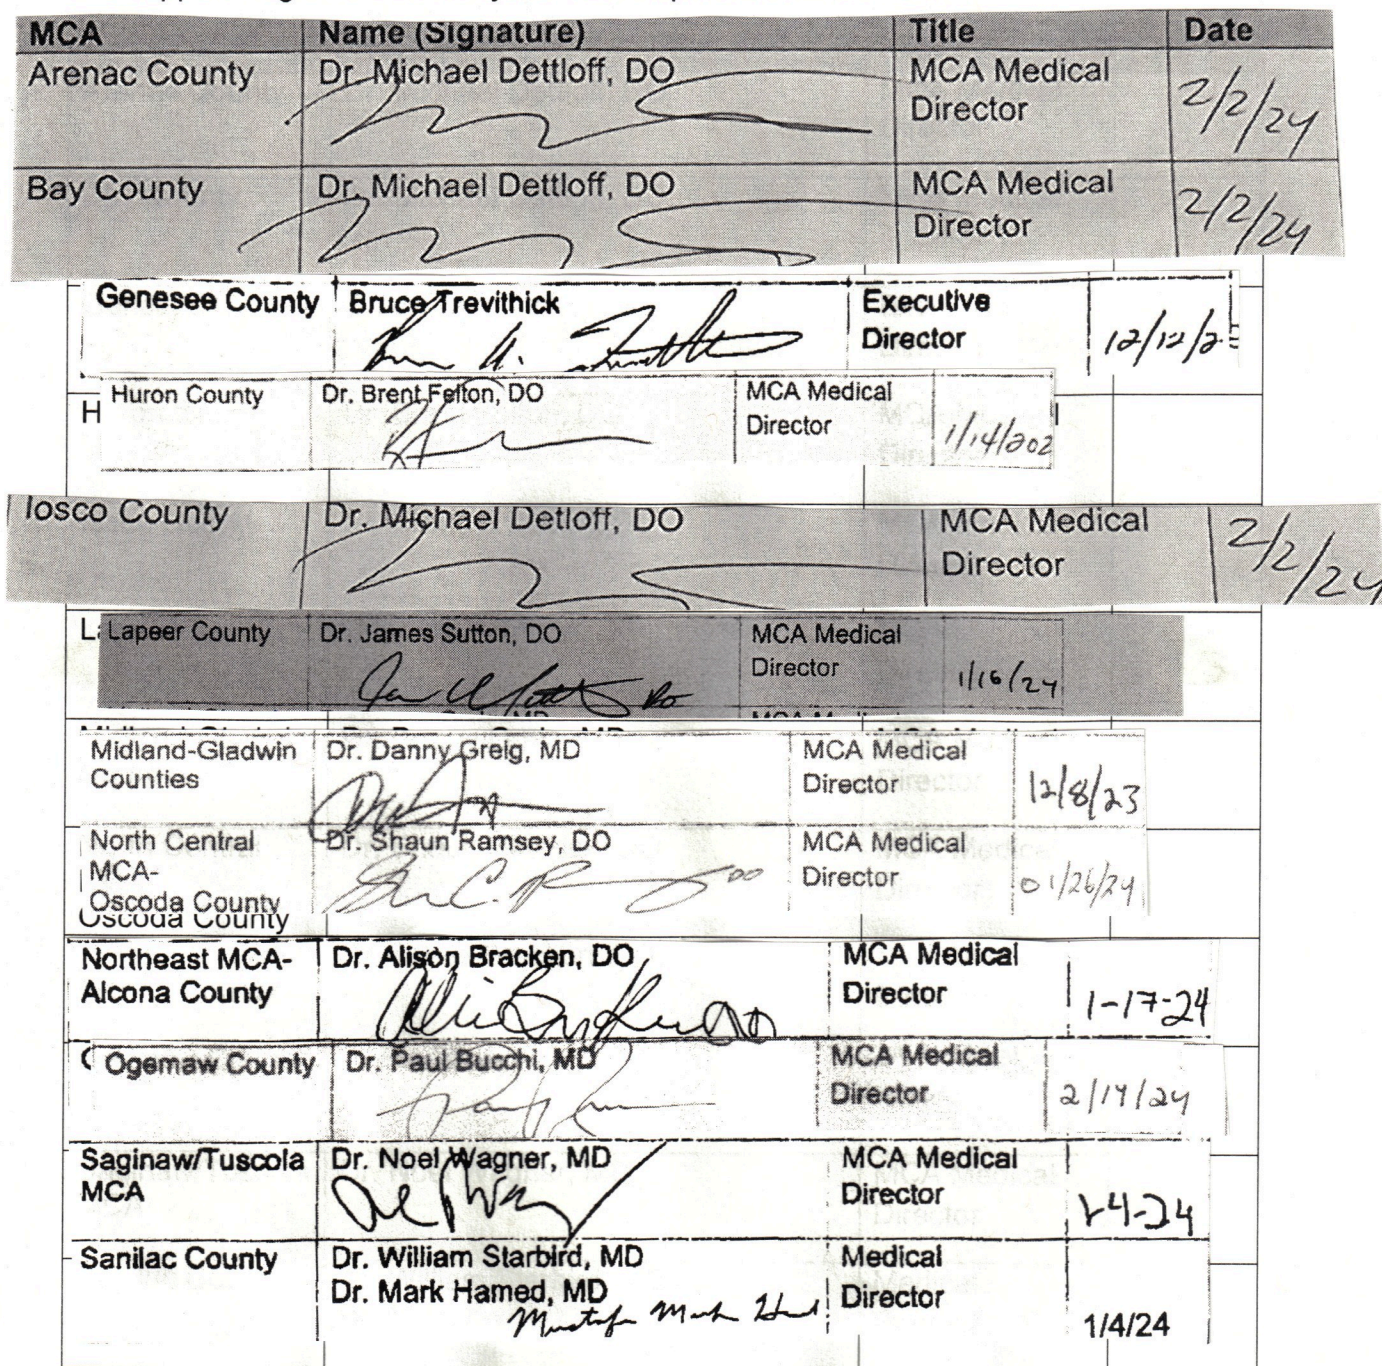 MCA Name (Signature) Title Date
Arenac County Dr. Michael Dettloff, DO MCA Medical
Director 2/2/24
Bay County Dr. Michael Dettloff, DO MCA Medical
Director 2/2/24
Genesee County Bruce Trevithick Executive
Director 12/12/2
H Huron County Dr. Brent Felton, DO MCA Medical
Director 1/14/202
Iosco County Dr. Michael Detloff, DO MCA Medical
Director 2/2/24
L Lapeer County Dr. James Sutton, DO MCA Medical
Director 1/16/24
Midland-Gladwin Dr. Danny Greig, MD MCA Medical
Counties Director 12/8/23
North Central Dr. Shaun Ramsey, DO MCA Medical
MCA- Director 01/26/24
Oscoda County
Oscoda County
Northeast MCA- Dr. Alison Bracken, DO MCA Medical
Alcona County Director 1-17-24
Ogemaw County Dr. Paul Bucchi, MD MCA Medical
Director 2/14/24
Saginaw/Tuscola Dr. Noel Wagner, MD MCA Medical
MCA Director -4-24
Sanilac County Dr. William Starbird, MD Medical
Dr. Mark Hamed, MD Director
Mustafa Mark Hamed 1/4/24